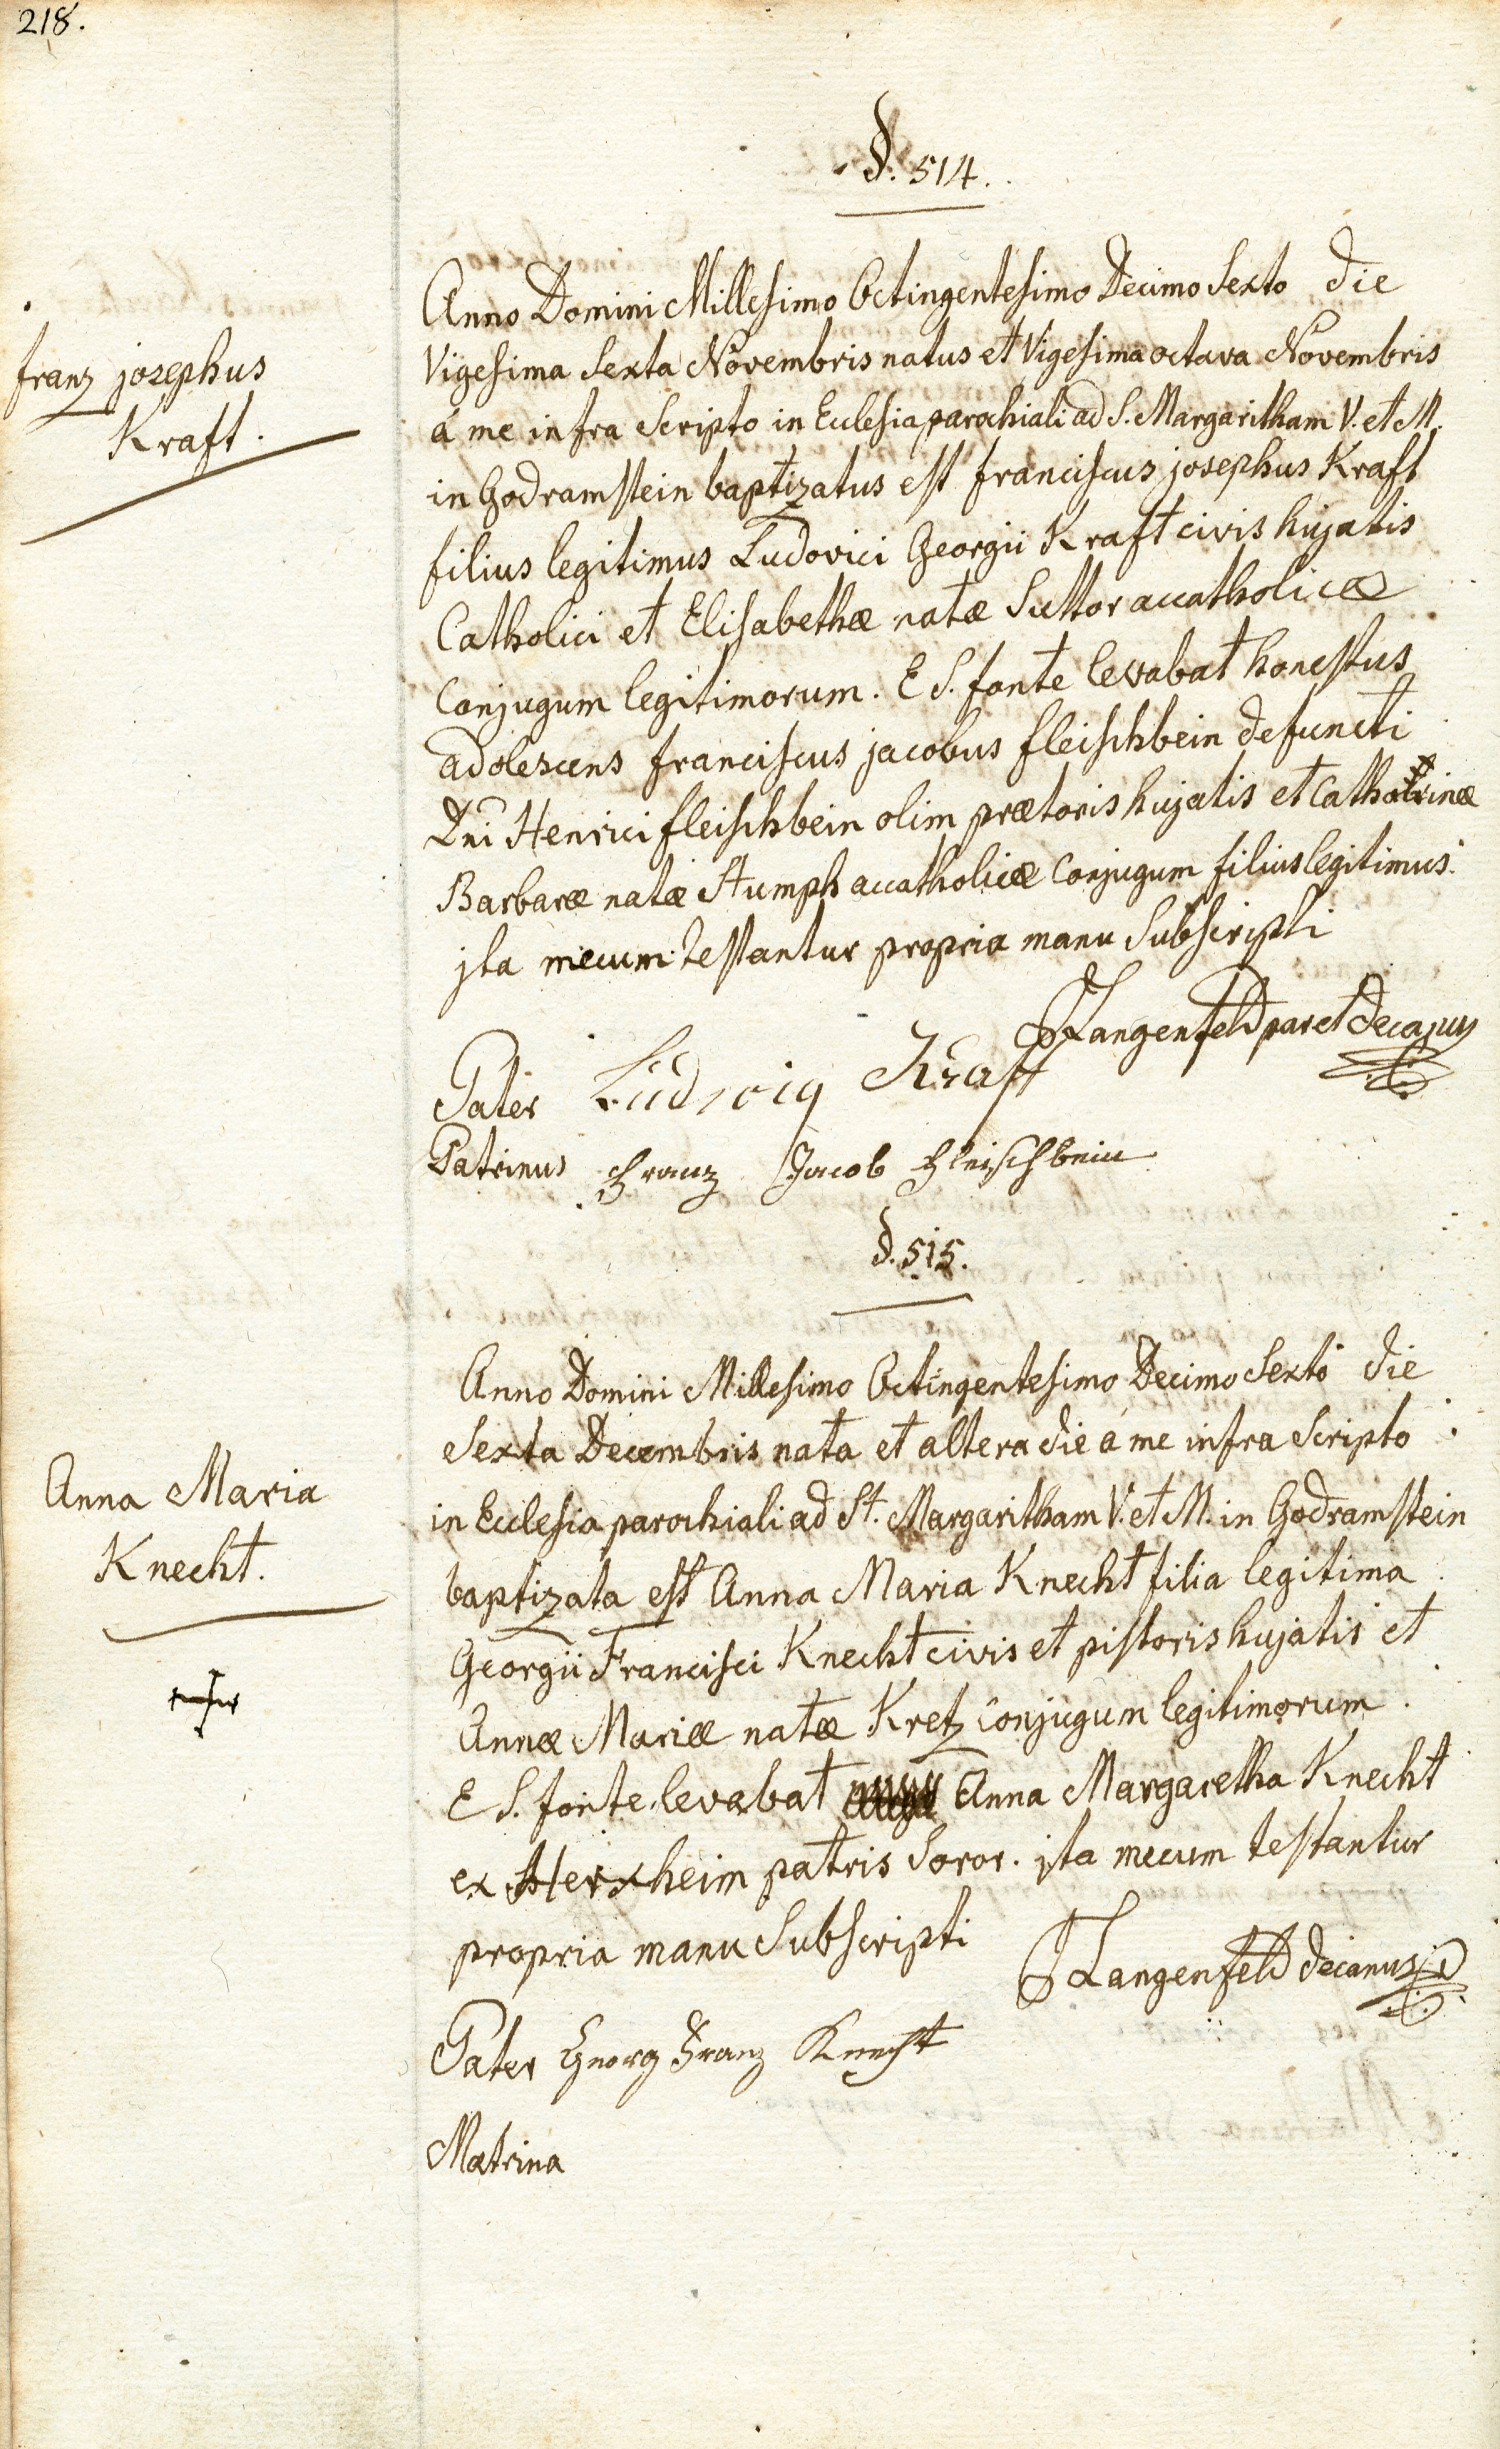 218.
§. 514.
franz josephus
Kraft.
Anno Domini Millesimo Octingentesimo Decimo Sexto die
Vigesima Sexta Novembris natus et Vigesima octava Novembris
á me infra Scripto in Ecclesia parochiali ad S. Margaritham V. et M.
in Godramstein baptizatus est franciscus josephus Kraft
filius legitimus Ludovici Georgii Kraft civis hujatis
Catholici et Elisabethæ natæ Suttor accatholicæ
Conjugum legitimorum. E S. fonte levabat honestus
adolescens franciscus jacobus fleischbein defuncti
Dni Henrici fleischbein olim prætoris hujatis et Cathatrinæ
Barbaræ natæ Stumph accatholicæ Conjugum filius legitimus.
jta mecum testantur propria manu Subscripti
JLangenfeld par et Decanus
Pater Ludwig Kraft
Patrinus Franz Jacob Fleischbein
§. 515.
Anna Maria
Knecht.
Anno Domini Millesimo Octingentesimo Decimo Sexto die
Sexta Decembris nata et altera die á me infra Scripto
in Ecclesia parochiali ad St. Margaritham V. et M. in Godramstein
baptizata est Anna Maria Knecht filia legitima
Georgii Francisci Knecht civis et pistoris hujatis et
Annæ Mariæ natæ Kretz Conjugum legitimorum.
E S. fonte levabat Anna Margaretha Knecht
ex Herxheim patris Soror. jta mecum testantur
propria manu Subscripti
JLangenfeld decanus
Pater Georg Franz Knecht
Matrina